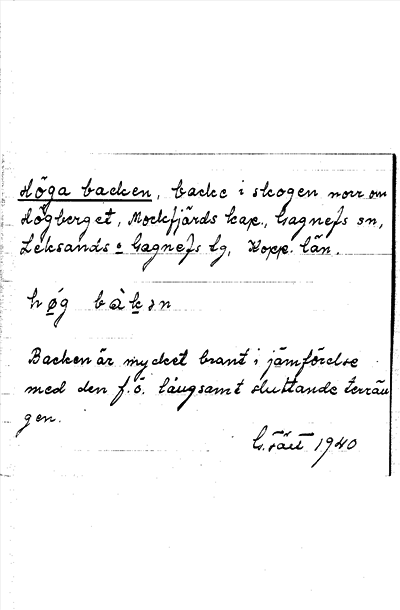 Höga backen, backe i skogen norr om
Högberget, Mockfjärds kap., Gagnefs sn,
Leksands o Gagnefs tg, Kopp. län.
hǿg bàkən
Backen är mycket brant i jämförelse
med den f.ö. långsamt sluttande terrän
gen.
G. 1940